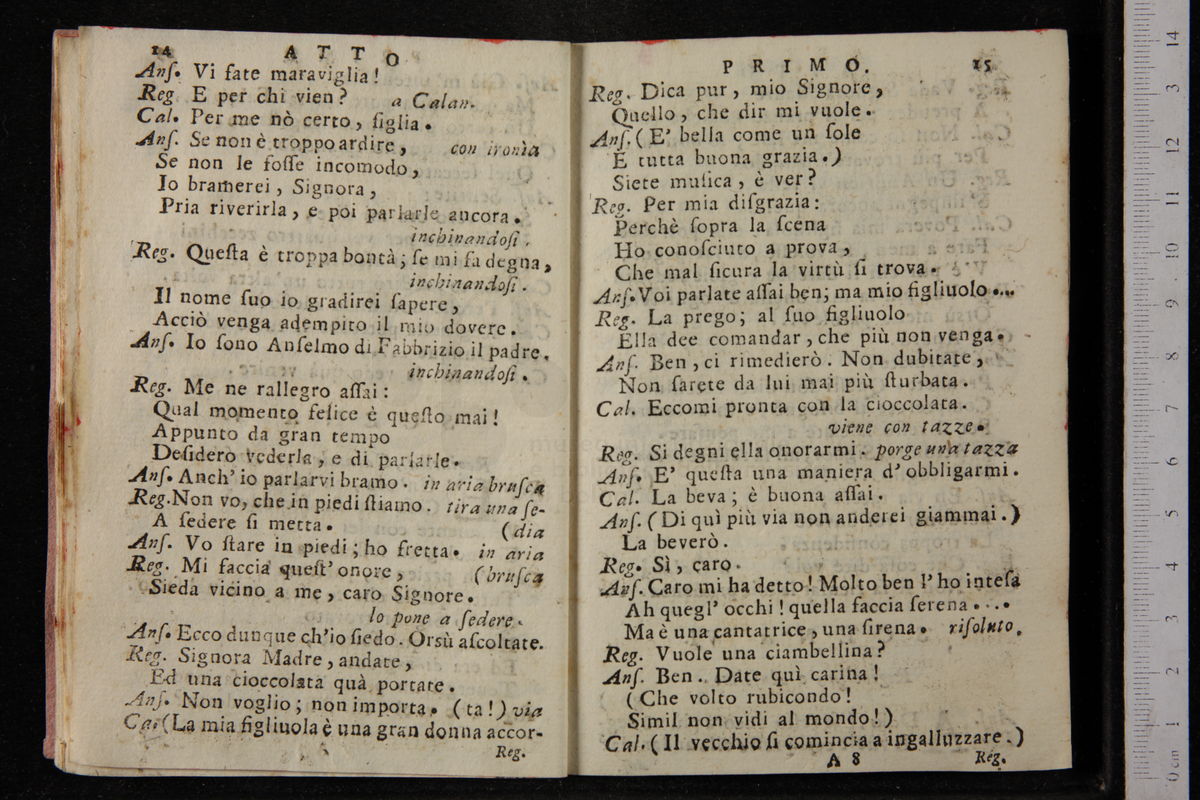 14 ATTO
Anſ. Vi fate maraviglia!
Reg E per chi vien? a Calan.
Cal. Per me nò certo, ſiglia.
Anſ. Se non è troppo ardire, con ironìa
Se non le foſſe incomodo,
Io bramerei, Signora,
Pria riverirla, e poi parlarle ancora.
inchinandoſi.
Reg. Queſta è troppa bontà; ſe mi fa degna,
inchinandoſi.
Il nome ſuo io gradirei ſapere,
Acciò venga adempito il mio dovere.
Anſ. Io ſono Anſelmo di Fabbrizio il padre.
inchinandoſi.
Reg. Me ne rallegro aſſai:
Qual momento felice è queſto mai!
Appunto da gran tempo
Deſidero vederla, e di parlarle.
Anſ. Anch' io parlarvi bramo. in aria bruſca
Reg. Non vo, che in piedi ſtiamo. tira una ſe-
A ſedere ſi metta. (dia
Anſ. Vo ſtare in piedi; ho fretta. in aria
Reg. Mi faccia queſt' onore, (bruſca
Sieda vicino a me, caro Signore.
lo pone a ſedere.
Anſ. Ecco dunque ch'io ſiedo. Orsù aſcoltate.
Reg. Signora Madre, andate,
Ed una cioccolata quà portate.
Anſ. Non voglio; non importa. (ta!) via
Ca. (La mia figliuola è una gran donna accor-
Reg.
PRIMO. 15
Reg. Dica pur, mio Signore,
Quello, che dir mi vuole.
Anſ. (E' bella come un ſole
E tutta buona grazia.)
Siete muſica, è ver?
Reg. Per mia diſgrazia:
Perchè ſopra la ſcena
Ho conoſciuto a prova,
Che mal ſicura la virtù ſi trova.
Anſ. Voi parlate aſſai ben; ma mio figliuolo....
Reg. La prego; al ſuo figliuolo
Ella dee comandar, che più non venga.
Anſ. Ben, ci rimedierò. Non dubitate,
Non ſarete da lui mai più ſturbata.
Cal. Eccomi pronta con la cioccolata.
viene con tazze.
Reg. Si degni ella onorarmi. porge una tazza
Anſ. E' queſta una maniera d' obbligarmi.
Cal. La beva; è buona aſſai.
Anſ. (Di quì più via non anderei giammai.)
La beverò.
Reg. Sì, caro.
Anſ. Caro mi ha detto! Molto ben l' ho inteſa
Ah quegl' occhi! quella faccia ſerena....
Ma è una cantatrice, una ſirena. riſoluto.
Reg. Vuole una ciambellina?
Anſ. Ben. Date quì carina!
(Che volto rubicondo!
Simil non vidi al mondo!)
Cal. (Il vecchio ſi comincia a ingalluzzare.)
A 8 Reg.
0 cm 1 2 3 4 5 6 7 8 9 10 11 12 13 14